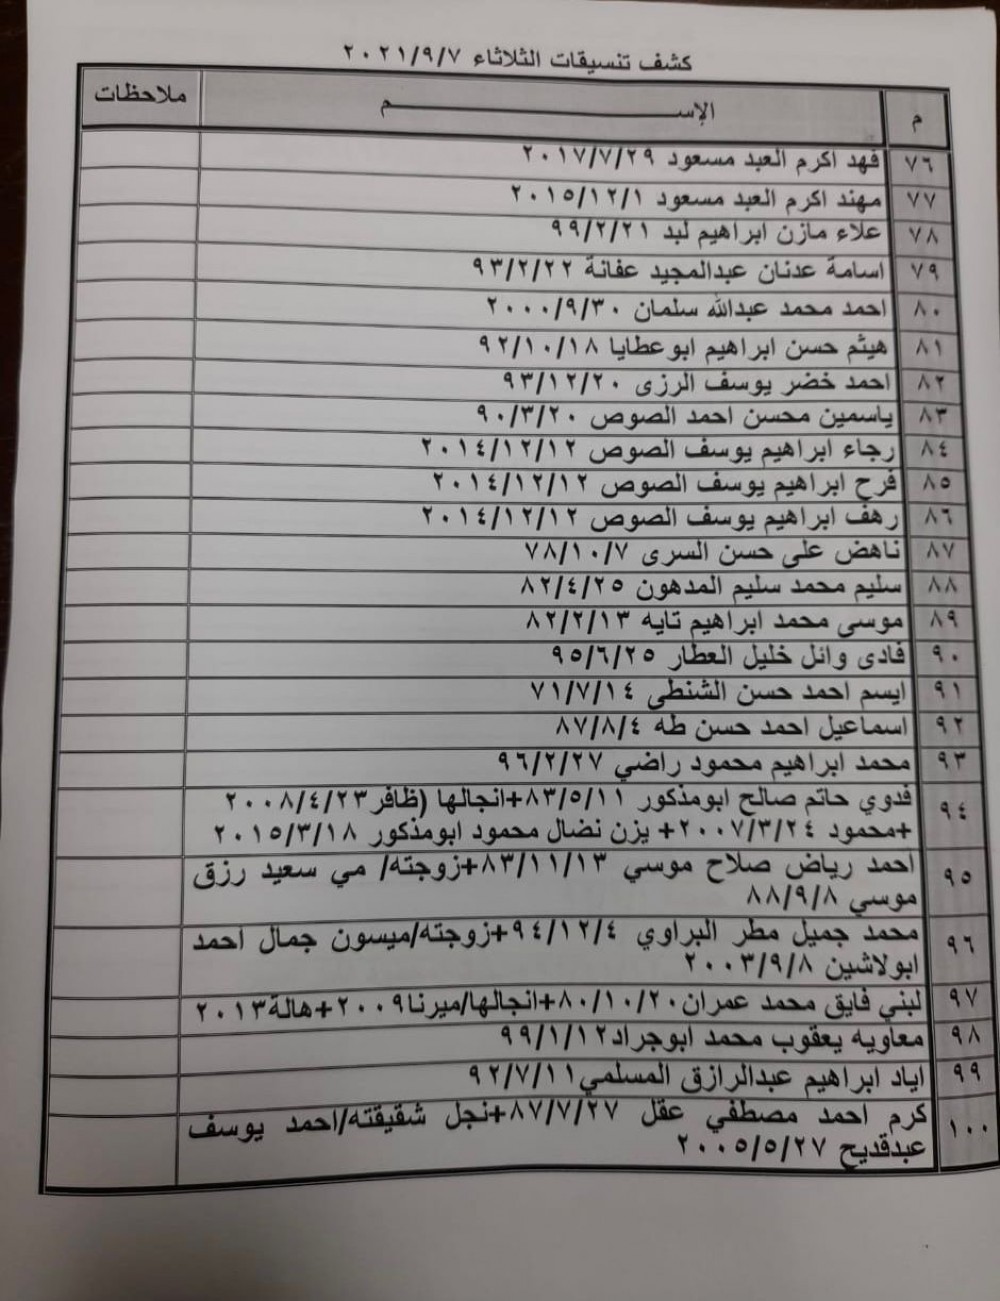 كشف تنسيقات الثلاثاء ٢٠٢١/٩/٧
م الإســـــم ملاحظات
٧٦ فهد اكرم العبد مسعود ٢٠١٧/٧/٢٩
٧٧ مهند اكرم العبد مسعود ٢٠١٥/١٢/١
٧٨ علاء مازن ابراهيم لبد ٩٩/٢/٢١
٧٩ اسامة عدنان عبدالمجيد عفانة ٩٣/٢/٢٢
٨٠ احمد محمد عبدالله سلمان ٢٠٠٠/٩/٣٠
٨١ هيثم حسن ابراهيم ابوعطايا ٩٢/١٠/١٨
٨٢ احمد خضر يوسف الرزى ٩٣/١٢/٢٠
٨٣ ياسمين محسن احمد الصوص ٩٠/٣/٢٠
٨٤ رجاء ابراهيم يوسف الصوص ٢٠١٤/١٢/١٢
٨٥ فرح ابراهيم يوسف الصوص ٢٠١٤/١٢/١٢
٨٦ رهف ابراهيم يوسف الصوص ٢٠١٤/١٢/١٢
٨٧ ناهض على حسن السرى ٧٨/١٠/٧
٨٨ سليم محمد سليم المدهون ٨٢/٤/٢٥
٨٩ موسى محمد ابراهيم تايه ٨٢/٢/١٣
٩٠ فادى وائل خليل العطار ٩٥/٦/٢٥
٩١ ايسم احمد حسن الشنطي ٧١/٧/١٤
٩٢ اسماعيل احمد حسن طه ٨٧/٨/٤
٩٣ محمد ابراهيم محمود راضي ٩٦/٢/٢٧
٩٤ فدوي حاتم صالح ابومذكور ٨٣/٥/١١+انجالها (ظافر٢٠٠٨/٤/٢٣
+محمود ٢٠٠٧/٣/٢٤+ يزن نضال محمود ابومذكور ٢٠١٥/٣/١٨
٩٥ احمد رياض صلاح موسي ٨٣/١١/١٣+زوجته/ مي سعيد رزق
موسي ٨٨/٩/٨
٩٦ محمد جميل مطر البراوي ٩٤/١٢/٤+زوجته/ميسون جمال احمد
ابولاشين ٢٠٠٣/٩/٨
٩٧ لبني فايق محمد عمران٨٠/١٠/٢٠+انجالها/ميرنا٢٠٠٩+هالة٢٠١٣
٩٨ معاويه يعقوب محمد ابوجراد٩٩/١/١٢
٩٩ اياد ابراهيم عبدالرازق المسلمي٩٢/٧/١١
١٠٠ كرم احمد مصطفي عقل ٨٧/٧/٢٧+نجل شقيقته/احمد يوسف
عبدقديح ٢٠٠٥/٥/٢٧